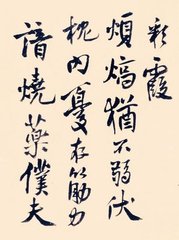 彩霞
煩熇猶不弱伏
枕内憂存筋力
燒藥僕夫